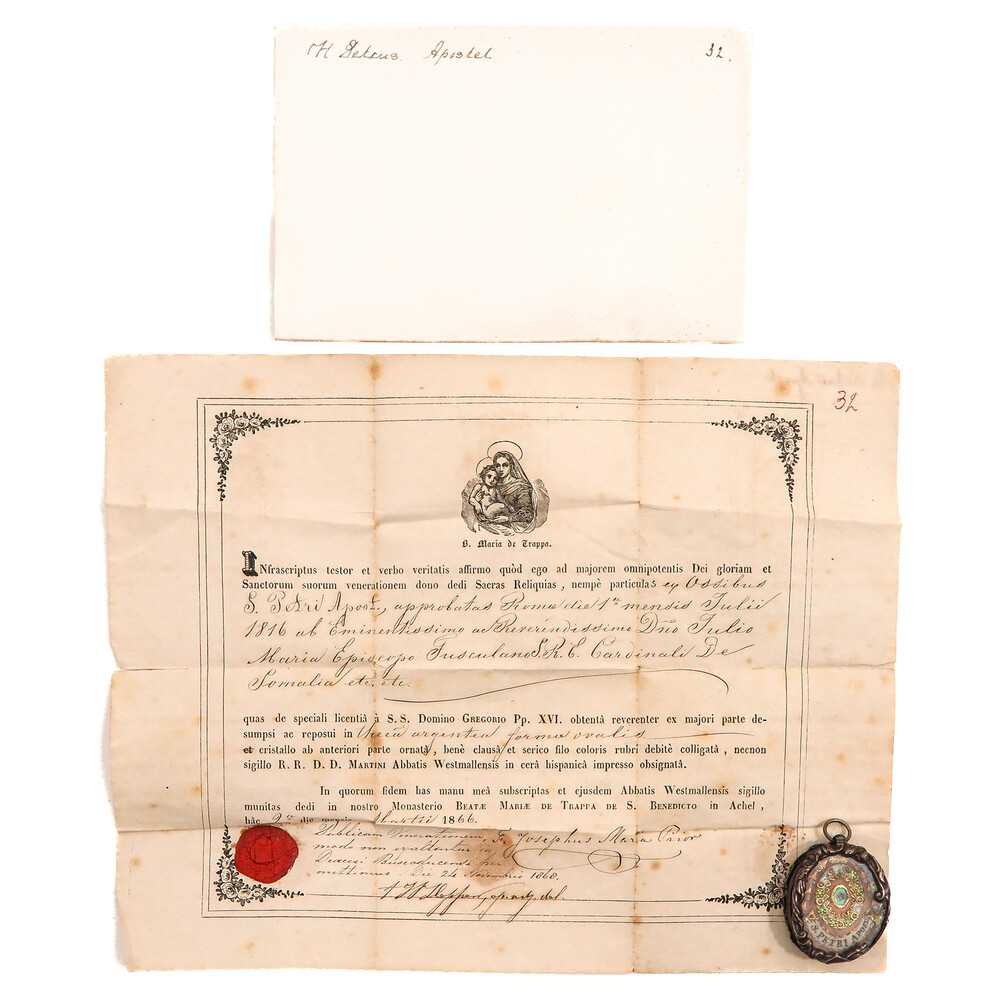 H Petrus. Apostel 32.
32
B. Maria de Trappa.
INfrascriptus testor et verbo veritatis affirmo quòd ego ad majorem omnipotentis Dei gloriam et
Sanctorum suorum venerationem dono dedi Sacras Reliquias, nempè particulas ex Ossibus
S. Petri Apost., approbatas Romæ die 1ª mensis Julii
1816 ab Eminentissimo ac Reverendissimo Dño Julio
Maria Episcopo Tusculano S.R.E. Cardinali De
Somalia etc. etc.
quas de speciali licentiâ à S. S. Domino GREGORIO Pp. XVI. obtentâ reverenter ex majori parte de-
sumpsi ac reposui in theca argentea forma ovalis
et cristallo ab anteriori parte ornatâ, benè clausâ et serico filo coloris rubri debitè colligatâ, necnon
sigillo R. R. D. D. MARTINI Abbatis Westmallensis in cerâ hispanicâ impresso obsignatâ.
In quorum fidem has manu meâ subscriptas et ejusdem Abbatis Westmallensis sigillo
munitas dedi in nostro Monasterio BEATÆ MARIÆ DE TRAPPA DE S. BENEDICTO in Achel,
hâc 2ª die mensis Martii 1866.
Publicam Venerationem, Fr. Josephus Maria Prior
modo non exaltentur in
Diœcesi Buscoducensi per
mittimus. Die 24 1868.
S. PETRI APOST.